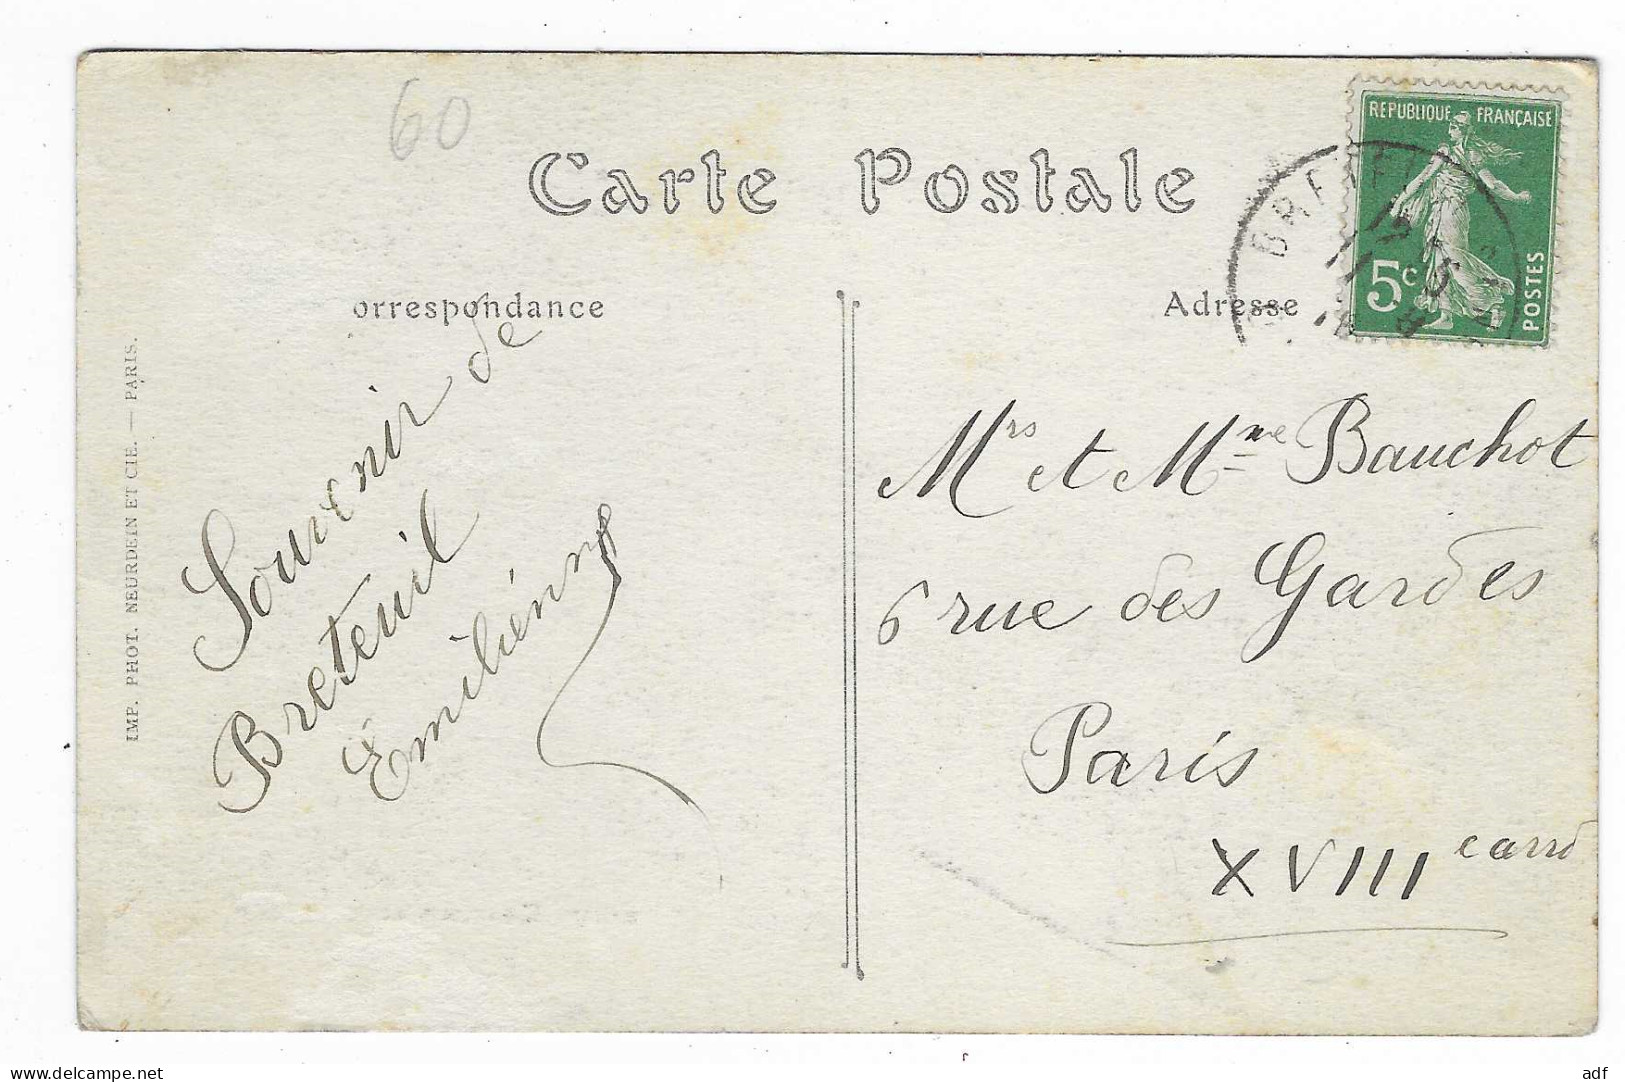 60
Carte Postale
REPUBLIQUE FRANÇAISE
5c
POSTES
orrespondance
Adresse
Souvenir de
Breteuil
Émilienne
Mrs et Mme Bauchot
6 rue des Gardes
Paris
XVIIIe arrd
IMP. PHOT. NEURDEIN ET CIE. — PARIS.
delcampe.net
adf